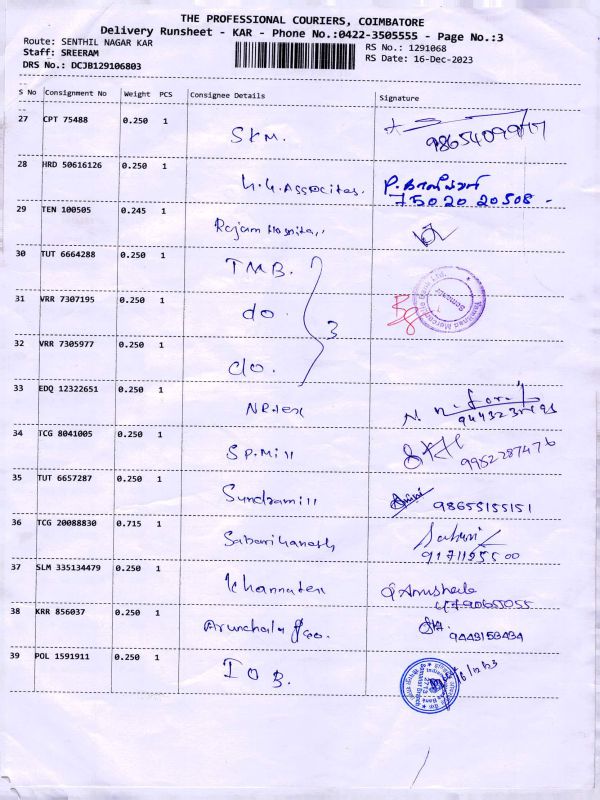 THE PROFESSIONAL COURIERS, COIMBATORE
Delivery Runsheet - KAR - Phone No.:0422-3505555 - Page No.:3
Route: SENTHIL NAGAR KAR
RS No.: 1291068
Staff: SREERAM
RS Date: 16-Dec-2023
DRS No.: DCJB129106803
S No Consignment No Weight PCS Consignee Details Signature
27 CPT 75488 0.250 1 SKM.
28 HRD 50616126 0.250 1 Associates. 75020 20508 -
29 TEN 100505 0.245 1 Rajam Hospital
30 TUT 6664288 0.250 1 TMB.
31 VRR 7307195 0.250 1 do. 3
32 VRR 7305977 0.250 1 do.
33 EDQ 12322651 0.250 1
34 TCG 8041005 0.250 1 S.P.Mill 9952287476
35 TUT 6657287 0.250 1 Sundramill 98655155151
36 TCG 20088830 0.715 1 Sabariganesh
37 SLM 335134479 0.250 1
38 KRR 856037 0.250 1 9449153434
39 POL 1591911 0.250 1 IOB. 16/12/23